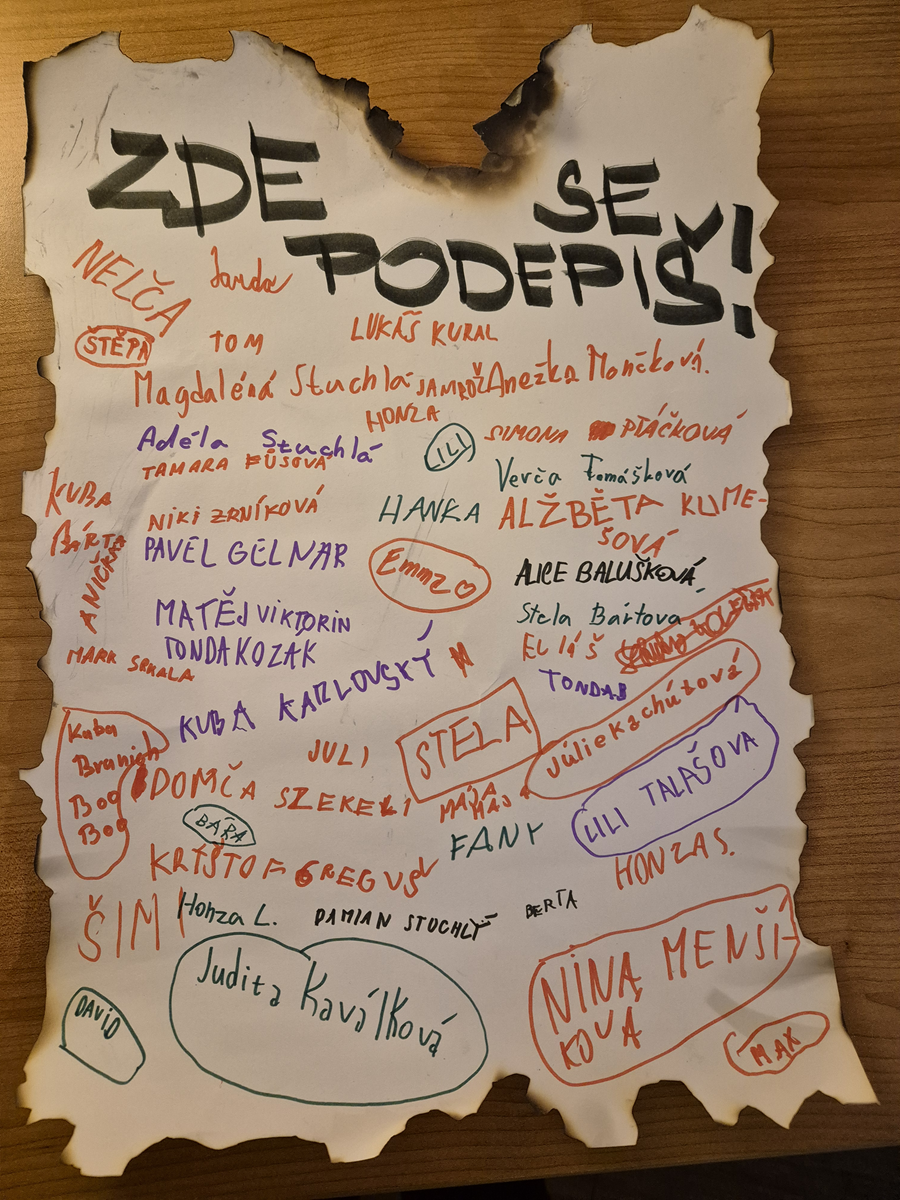 ZDE SE
PODEPIŠ!
NELČA
Janda
ŠTĚPA
TOM
LUKÁŠ KURAL
Magdaléná Stuchlá
JAMROŽ
HONZA
Anežka Mončková.
Adéla Stuchlá
LILI
SIMONA PTÁČKOVÁ
TAMARA FŮSOVÁ
Verča Tomášková
KUBA
BÁRTA
NIKI ZRNÍKOVÁ
HANKA
ALŽBĚTA KLIME-
ŠOVÁ
ANIČKA
PAVEL GELNAR
Emmz
ALICE BALUŠKOVÁ
MATĚJ VIKTORIN
Stela Bártova
TONDA KOZAK
ELIÁŠ
MARK SRKALA
KUBA KARLOVSKÝ
TONDA B
Kuba
Branich
Boo
Boo
JULI
STELA
Júlie Kachútová
DOMČA SZEKELI
MÁJA
LILI TALAŠOVA
BÁRA
FANY
KRÝŠTOF GREGUŠ
HONZA S.
ŠIM
Honza L.
DAMIAN STUCHLÝ
BERTA
Judita Kaválková
NINA MENŠÍ-
KOVÁ
DAVID
MAX